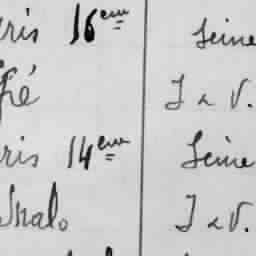 ris 16eme Seine
fré I & V.
ris 14eme Seine
Malo I & V.